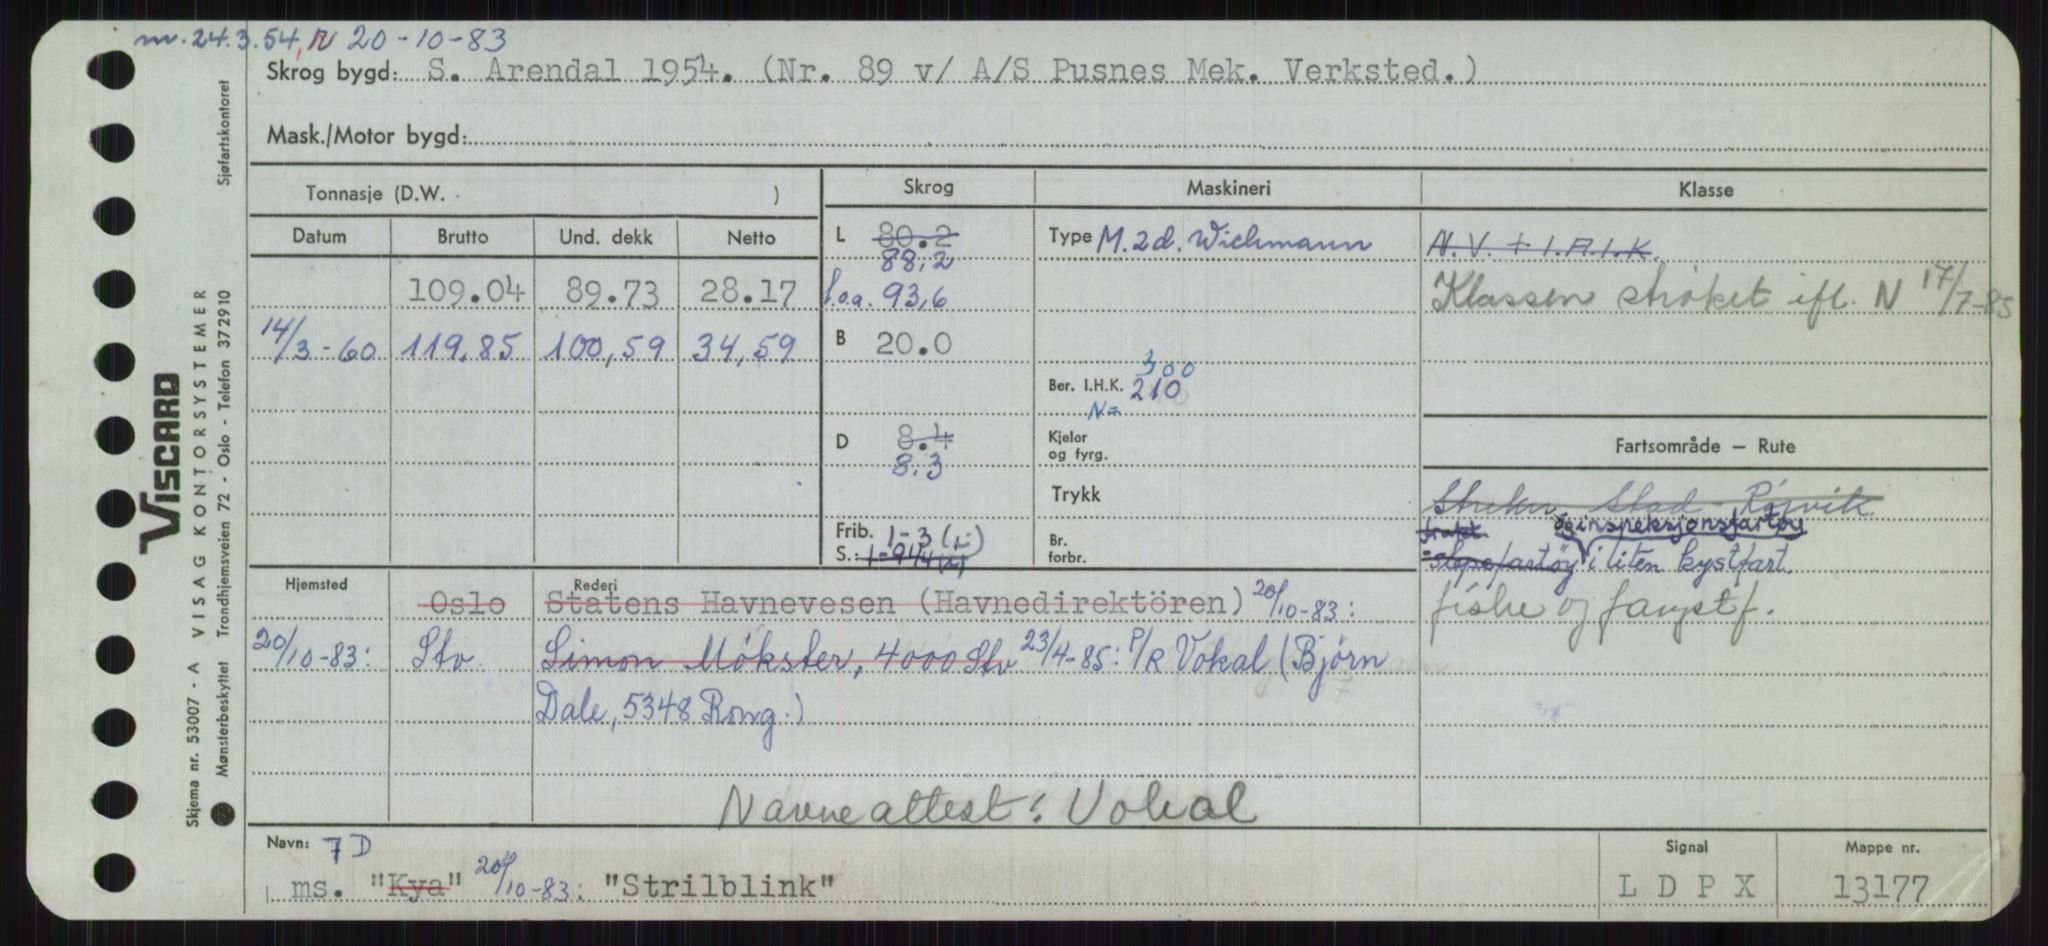 nr. 24.3.54, N 20-10-83
Skrog bygd: S. Arendal 1954. (Nr. 89 v/ A/S Pusnes Mek. Verksted.)
Mask./Motor bygd:
Tonnasje (D.W. ) Skrog Maskineri Klasse
Datum Brutto Und. dekk Netto L 80.2 Type M. 2 d. Wichmann N.V. + I.A.I.K.
88,2
109.04 89.73 28.17 l.o.a. 93,6 Klassen strøket ifl. N 17/7-85
14/3-60 119,85 100,59 34,59 B 20.0
300
Ber. I.H.K. 210
N=
D 8.4 Kjeler og fyrg. Fartsområde — Rute
8.3
Trykk Strekn. Stad - Rørvik
Frib. 1-3 (L) Br. forbr. frakt og inspeksjonsfartøy
S.: 1-9 1/4 (L) -slepefartøy i liten kystfart.
Hjemsted Rederi
Oslo Statens Havnevesen (Havnedirektören) 20/10-83: fiske og fangstf.
20/10-83: Stv Simon Mökster, 4000 Stv 23/4-85: P/R Vokal (Bjørn
Dale, 5348 Rong.)
Navneattest: Vokal
Navn: 7D Signal Mappe nr.
ms. "Kya" 20/10-83: "Strilblink" L D P X 13177
Viscard
VISAG KONTORSYSTEMER
Skjema nr. 53007 - A
Mønsterbeskyttet Trondhjemsveien 72 - Oslo - Telefon 372910 Sjøfartskontoret